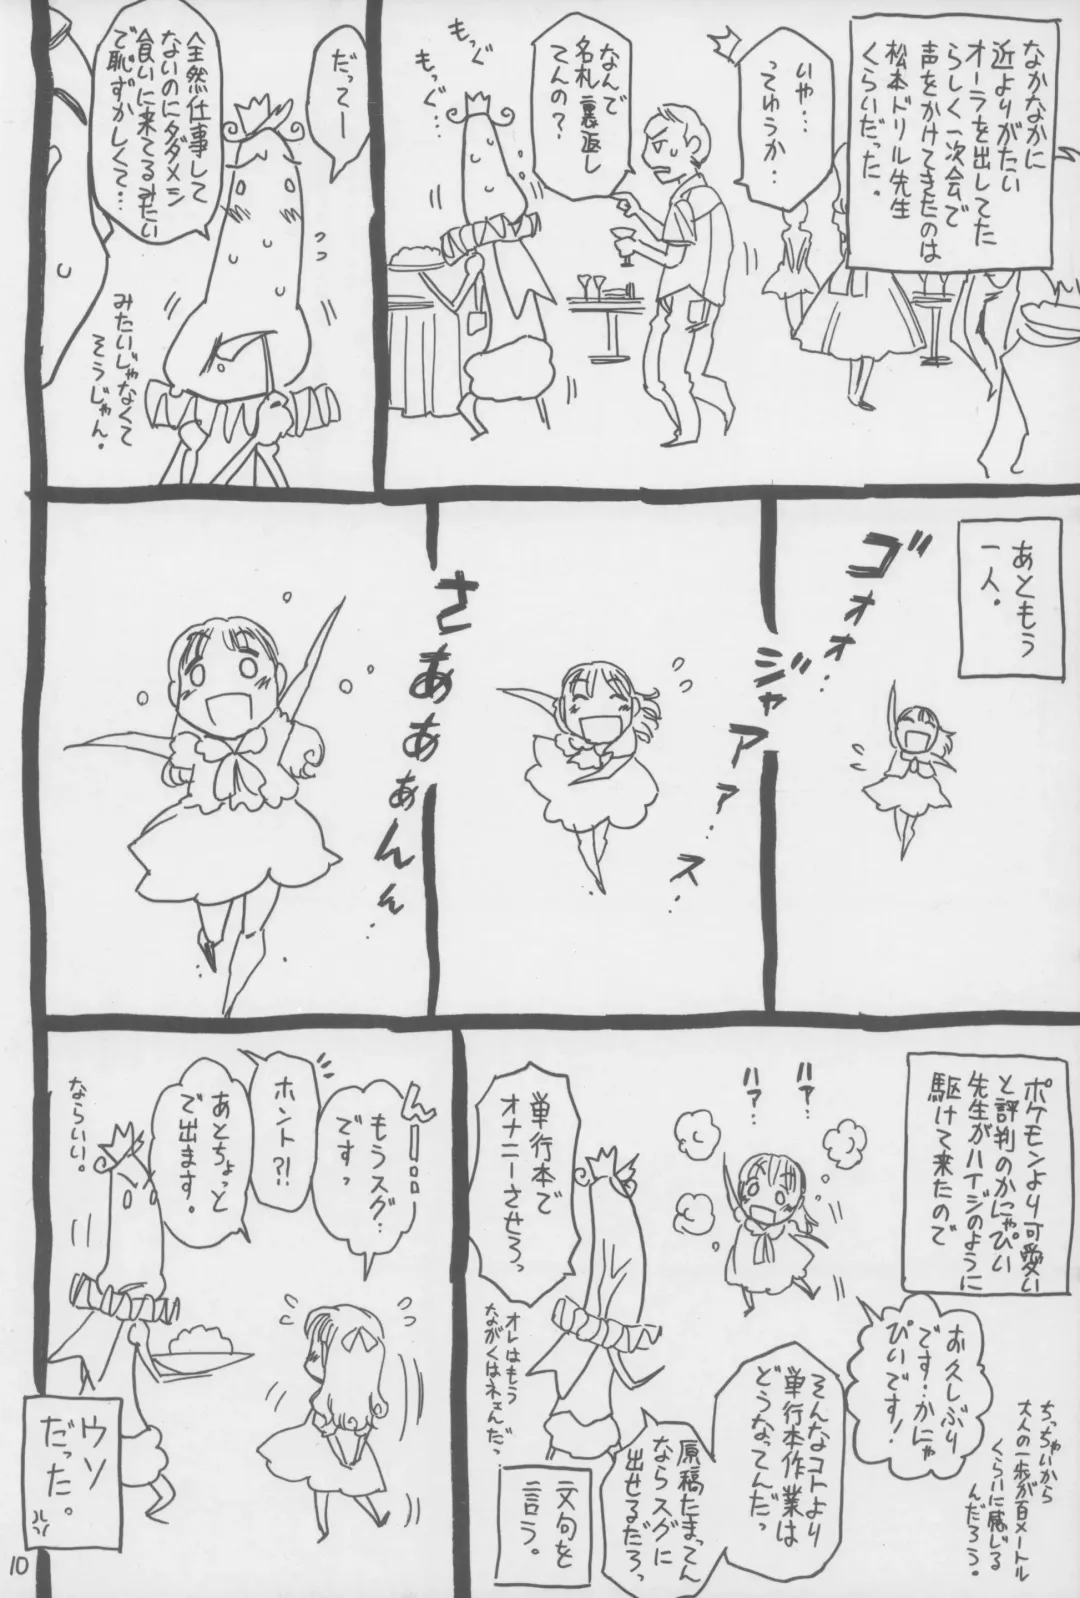 なかなかに
近よりがたい
オーラを出してた
らしく一次会で
声をかけてきたのは
松本ドリル先生
くらいだった。
いや…
ってゆうか…
なんで
名札裏返し
てんの?
もっぐ
もっぐ…
だってー
全然仕事して
ないのにタダメシ
食いに来てるみたい
で恥ずかしくて…
みたいじゃなくて
そうじゃん。
あともう
一人。
ゴォォ…
ジャアァァ…
ス…
さあぁぁんん…
ポケモンより可愛い
と評判のかにゃぴい
先生がハイジのように
駆けて来たので
ハァ…
ハァ…
お久しぶり
です…かにゃ
ぴいです!
ちっちゃいから
大人の一歩が百メートル
くらいに感じる
んだろう。
単行本で
オナニーさせろっ
そんなコトより
単行本作業は
どうなってんだっ
原稿たまってん
ならスグに
出せるだろっ
オレはもう
ながくはネェんだっ
文句を
言う。
んー…
もうスグ…
ですっ
ホント?!
あとちょっと
で出ます。
ならいい。
ウソ
だった。
10